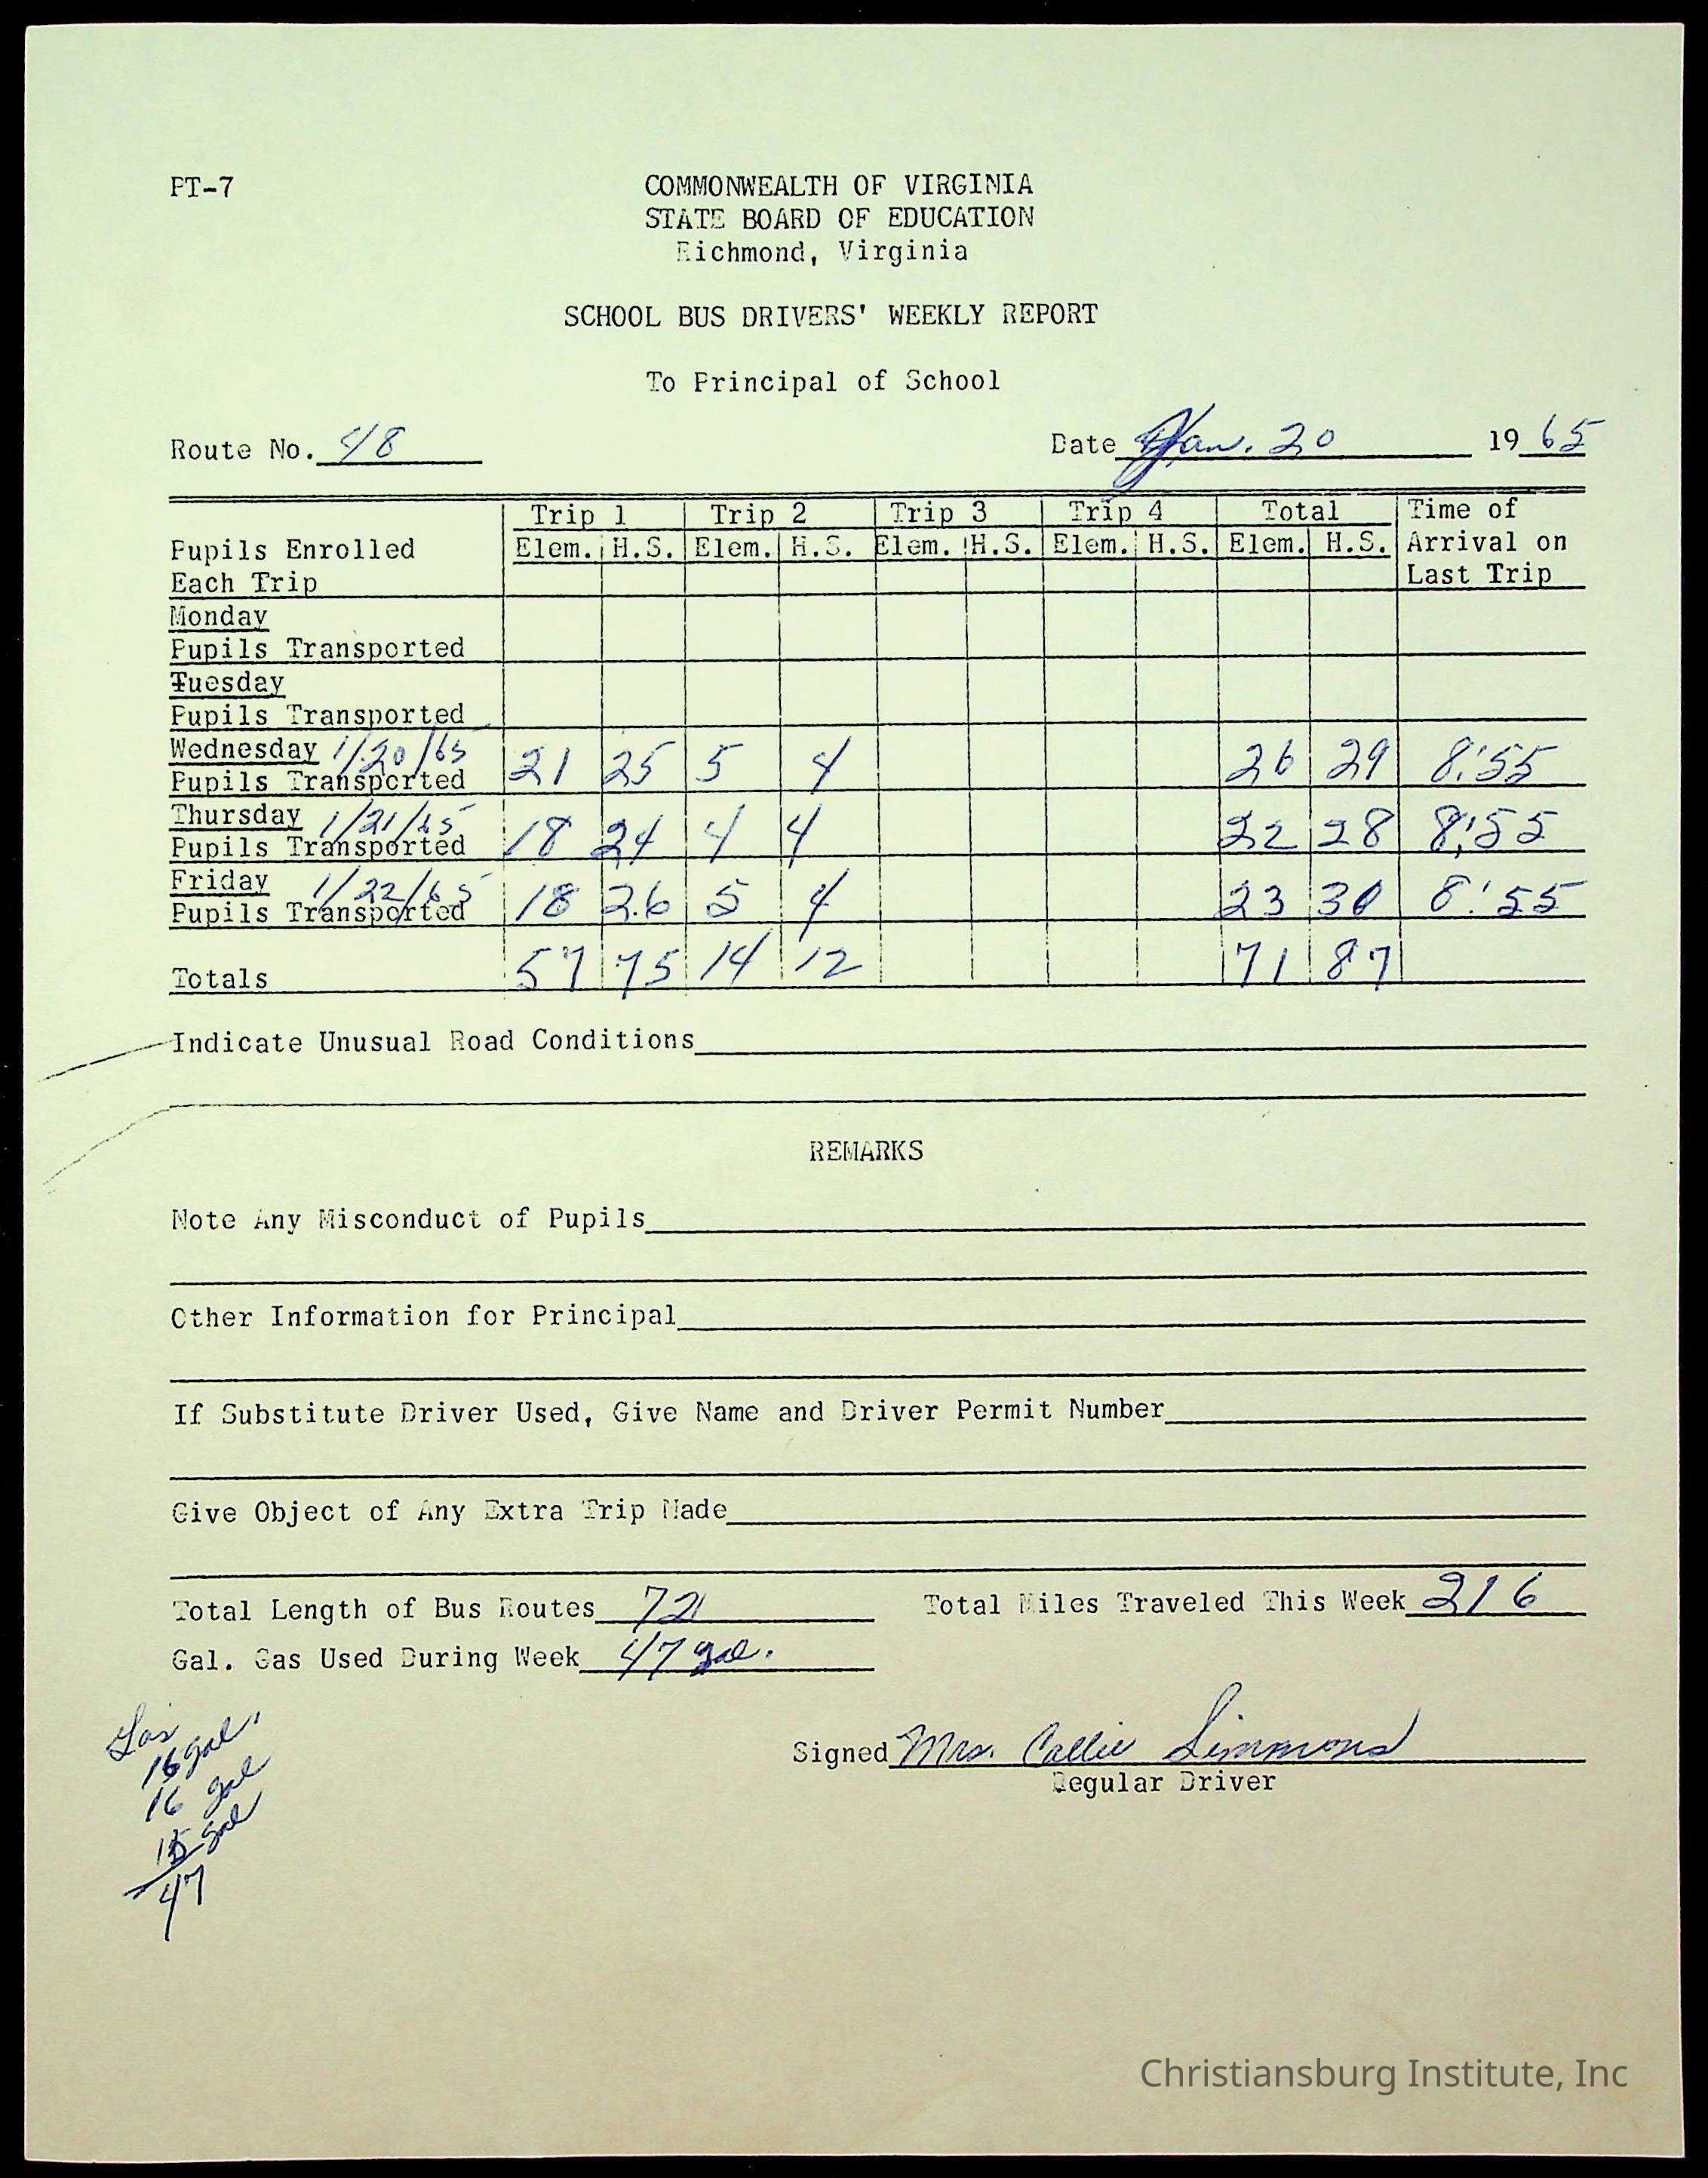 PT-7
COMMONWEALTH OF VIRGINIA
STATE BOARD OF EDUCATION
Richmond, Virginia
SCHOOL BUS DRIVERS' WEEKLY REPORT
To Principal of School
Route No. 48 Date Jan. 20 1965
Trip 1 Trip 2 Trip 3 Trip 4 Total Time of
Pupils Enrolled Elem. H.S. Elem. H.S. Elem. H.S. Elem. H.S. Elem. H.S. Arrival on
Each Trip Last Trip
Monday
Pupils Transported
Tuesday
Pupils Transported
Wednesday 1/20/65
Pupils Transported 21 25 5 4 26 29 8:55
Thursday 1/21/65
Pupils Transported 18 24 4 4 22 28 8:55
Friday 1/22/65
Pupils Transported 18 26 5 4 23 30 8:55
Totals 57 75 14 12 71 87
Indicate Unusual Road Conditions
REMARKS
Note Any Misconduct of Pupils
Other Information for Principal
If Substitute Driver Used, Give Name and Driver Permit Number
Give Object of Any Extra Trip Made
Total Length of Bus Routes 72 Total Miles Traveled This Week 216
Gal. Gas Used During Week 47 gal.
Gas
16 gal
16 gal
15 gal
47
Signed Mrs. Callie Simmons
Regular Driver
Christiansburg Institute, Inc